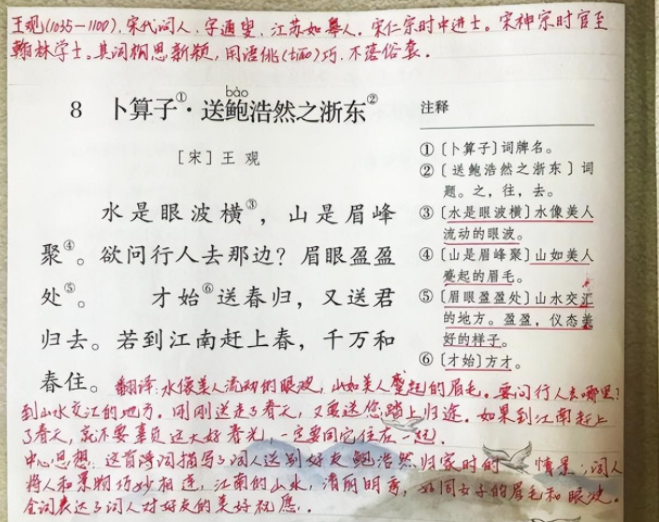 王观(1035—1100),宋代词人,字通叟,江苏如皋人。宋仁宗时中进士。宋神宗时官至
翰林学士。其词构思新颖,用语佻(tiāo)巧,不落俗套。
bào
8 卜算子①·送鲍浩然之浙东②
[宋]王 观
水是眼波横③,山是眉峰
聚④。欲问行人去那边?眉眼盈盈
处⑤。 才始⑥送春归,又送君
归去。若到江南赶上春,千万和
春住。
注释
①〔卜算子〕词牌名。
②〔送鲍浩然之浙东〕词
题。之,往,去。
③〔水是眼波横〕水像美人
流动的眼波。
④〔山是眉峰聚〕山如美人
蹙起的眉毛。
⑤〔眉眼盈盈处〕山水交汇
的地方。盈盈,仪态美
好的样子。
⑥〔才始〕方才。
翻译:水像美人流动的眼波,山如美人蹙起的眉毛。要问行人去哪里?
到山水交汇的地方。刚刚送走了春天,又要送您踏上归途。如果到江南赶上
了春天,就不要辜负这大好春光,一定要同它住在一起。
中心思想:这首诗词描写了词人送别好友鲍浩然归家时的 情景,词人
将人和景物巧妙相连,江南的山水,清丽明秀,如同女子的眉毛和眼波。
全词表达了词人对好友的美好祝愿。